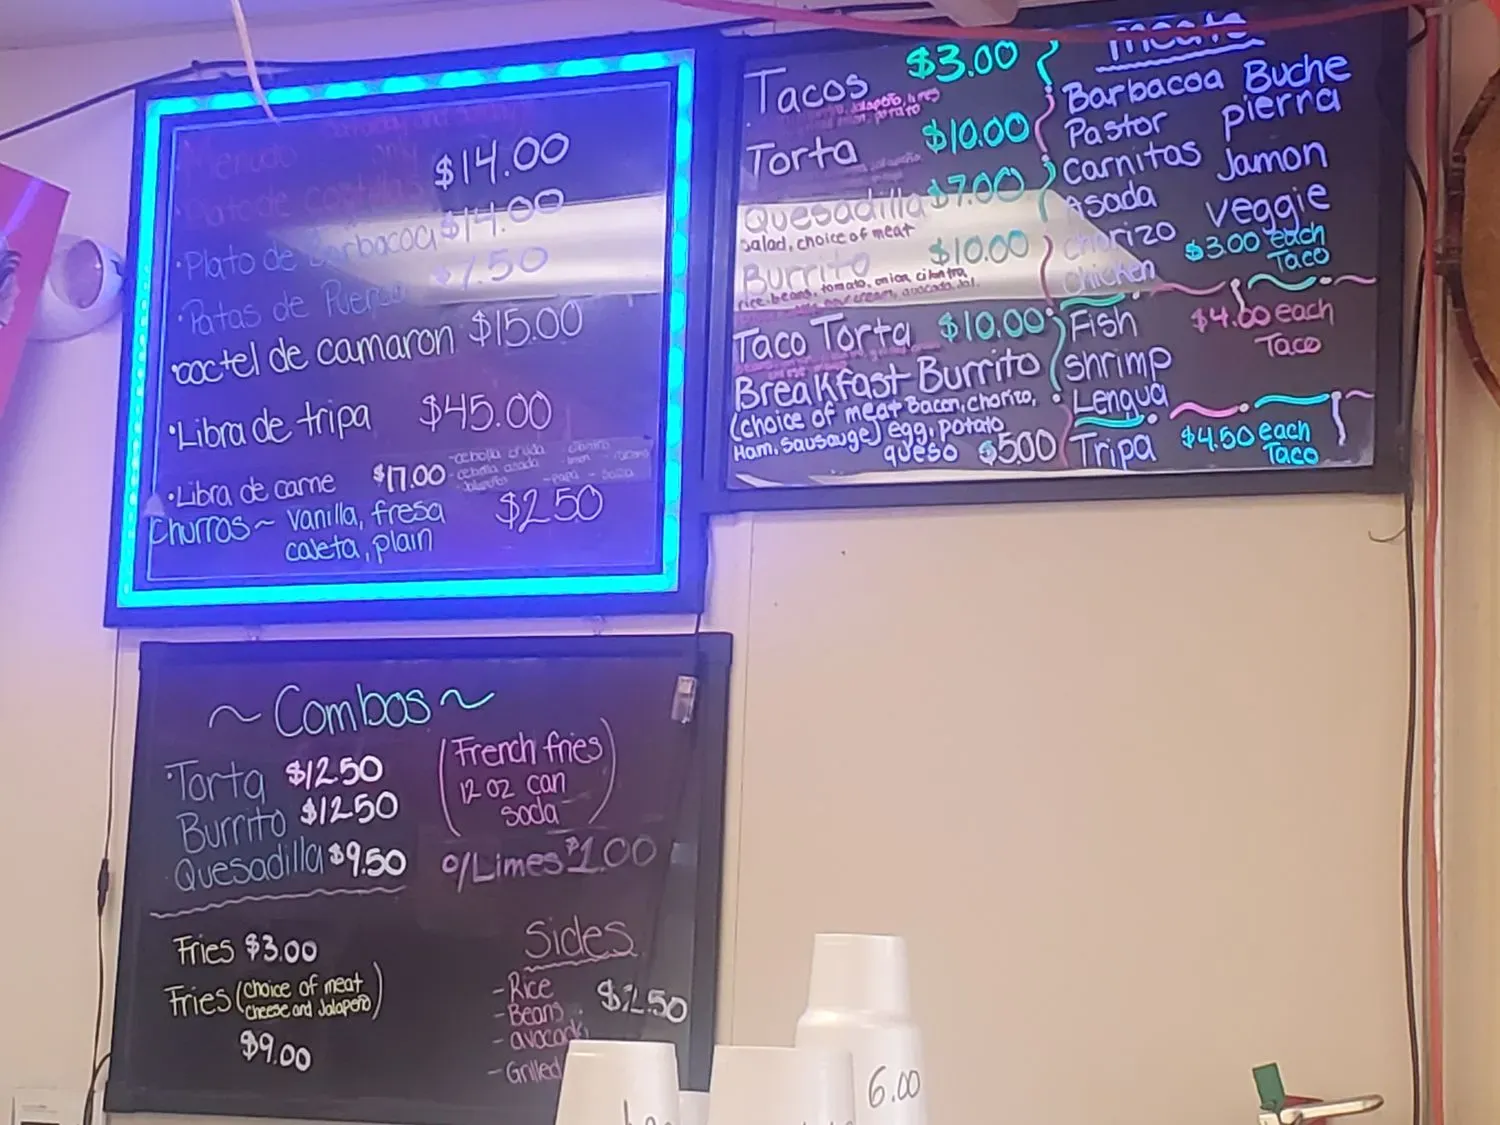 Menudo
$14.00
·Plato de Barbacoa $14.00
·Patas de Puerco $7.50
·coctel de camaron $15.00
·Libra de tripa $45.00
·Libra de carne $17.00
Churros~ vanilla, fresa $2.50
cajeta, plain
Tacos $3.00
Torta $10.00
Quesadilla $7.00
salad, choice of meat
Burrito $10.00
rice, beans, tomato, onion, cilantro
Taco Torta $10.00
Breakfast Burrito
(choice of meat Bacon, chorizo,
Ham, sausauge) egg, potato
queso $5.00
meats
Barbacoa Buche
Pastor pierna
Carnitas Jamon
Asada veggie
chorizo $3.00 each
chicken Taco
Fish $4.00 each
shrimp Taco
Lengua
Tripa $4.50 each
Taco
~ Combos ~
·Torta $12.50
Burrito $12.50
·Quesadilla $9.50
(French fries
12 oz can
soda)
o/Limes $1.00
Fries $3.00
Fries (choice of meat
cheese and Jalapeño)
$9.00
Sides
-Rice $2.50
-Beans
-avocado
-Grilled
6.00